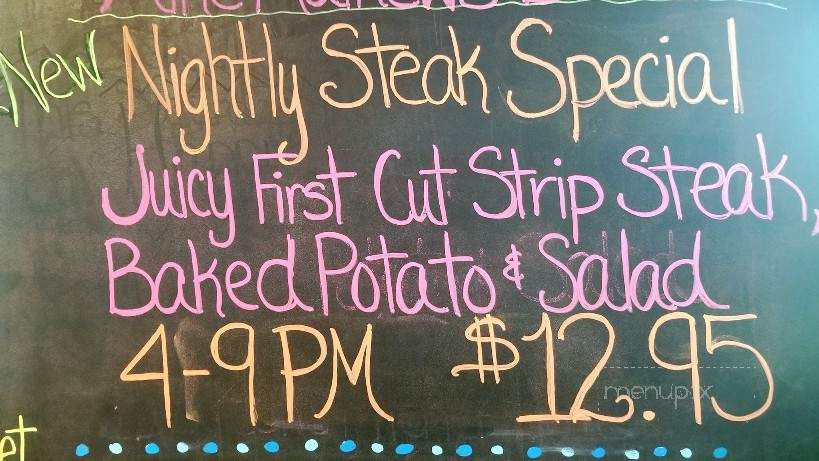 New Nightly Steak Special
Juicy First Cut Strip Steak,
Baked Potato & Salad
4-9 PM $12.95
menupix
et